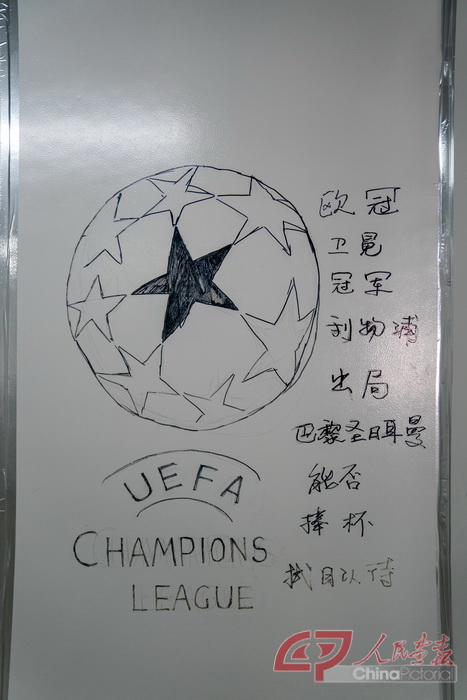 欧冠
卫冕
冠军
利物浦
出局
巴黎圣日耳曼
能否
捧杯
拭目以待
UEFA
CHAMPIONS
LEAGUE
人民画报
ChinaPictorial